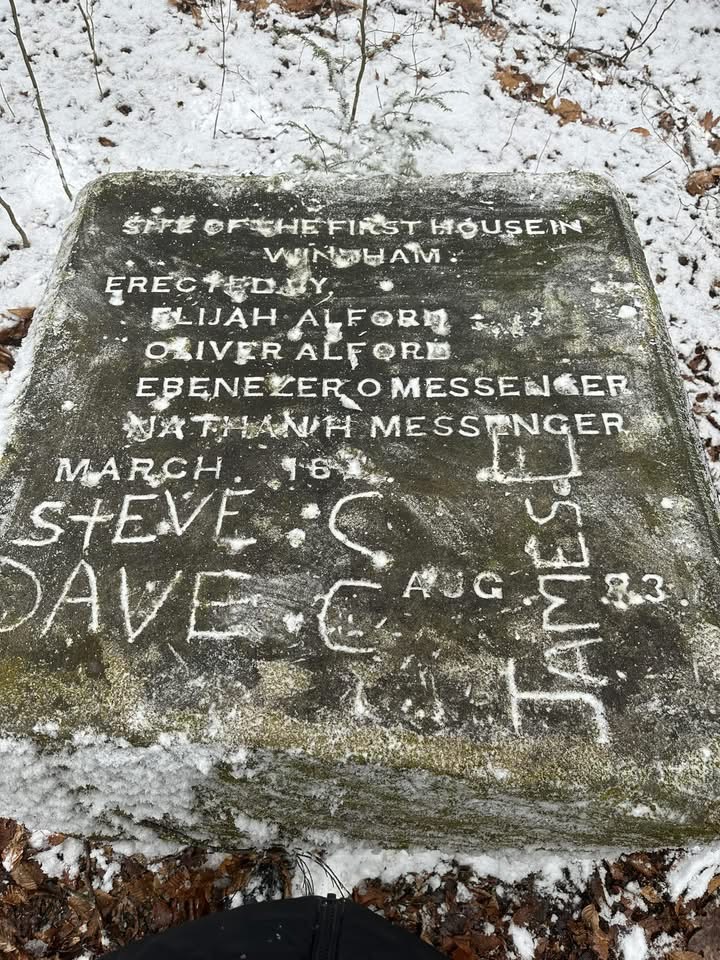 SITE OF THE FIRST HOUSE IN
WINDHAM.
ERECTED BY
ELIJAH ALFORD
OLIVER ALFORD
EBENEZER O MESSENGER
NATHAN H MESSENGER
MARCH.
STEVE C
DAVE C
AUG. 83.
JAMES E